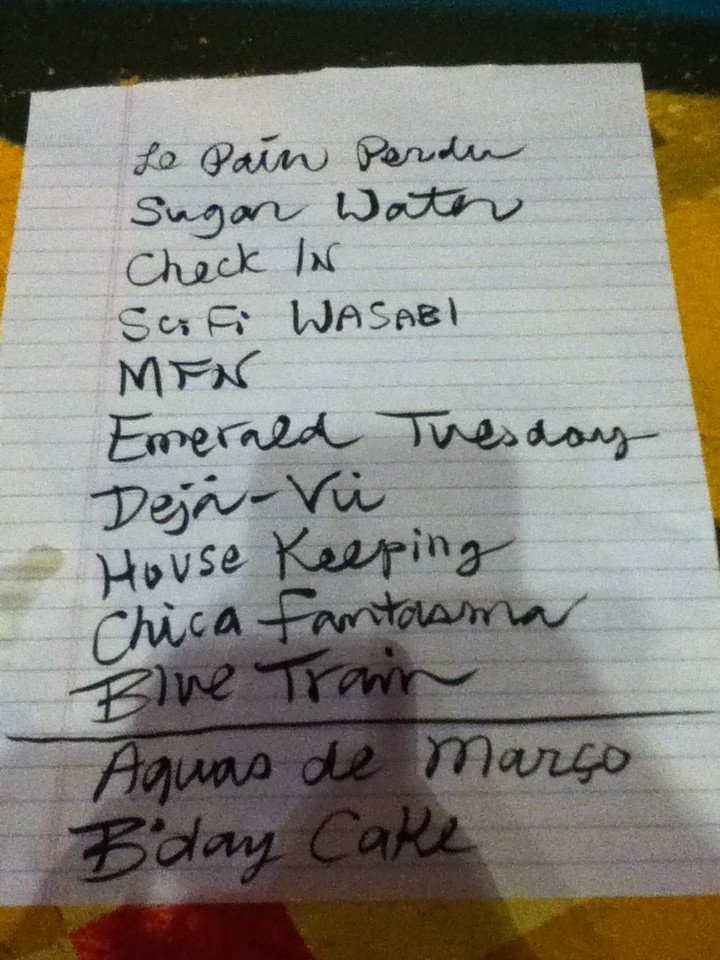 Le Pain Perdu
Sugar Water
Check IN
Sci Fi WASABI
MFN
Emerald Tuesday
Dejá-Vu
House Keeping
Chica Fantasma
Blue Train
Aguas de Março
B'day Cake